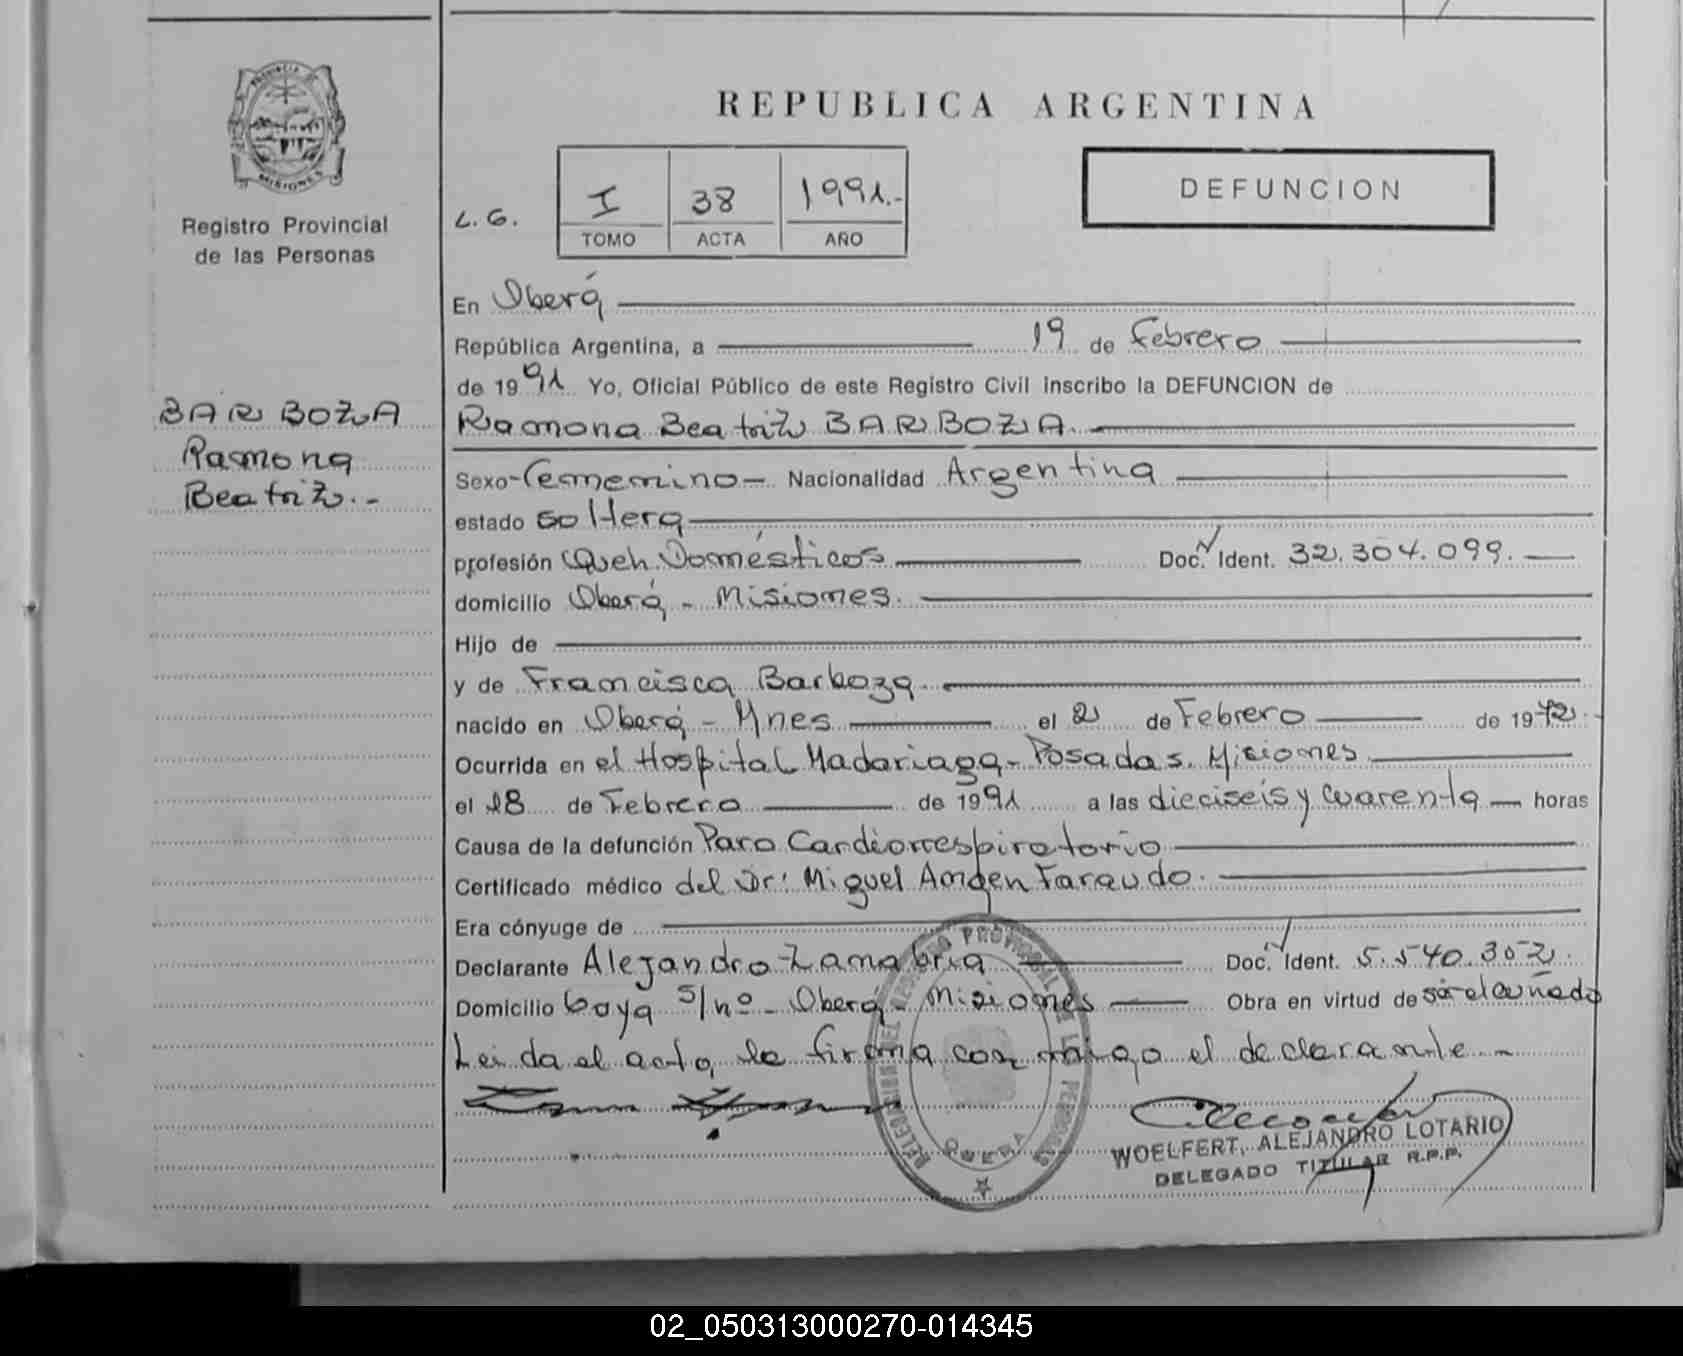 REPUBLICA ARGENTINA
PROVINCIA DE
MISIONES
Registro Provincial
de las Personas
L. G.
I 38 1991.-
TOMO ACTA AÑO
DEFUNCION
BARBOZA
Ramona
Beatriz.-
En Oberá
República Argentina, a 19 de Febrero
de 1991 Yo, Oficial Público de este Registro Civil inscribo la DEFUNCION de
Ramona Beatriz BARBOZA.
Sexo Femenino Nacionalidad Argentina
estado soltera
profesión Queh. Domésticos Doc. Ident. 32.304.099.
domicilio Oberá - Misiones.
Hijo de
y de Francisca Barboza.
nacido en Oberá - Mnes el 2 de Febrero de 1972.
Ocurrida en el Hospital Madariaga - Posadas. Misiones
el 18 de Febrero de 1991 a las dieciseis y cuarenta horas
Causa de la defunción Paro Cardiorrespiratorio
Certificado médico del Dr: Miguel Angen Faraudo.
Era cónyuge de
Declarante Alejandro Zamabria Doc. Ident. 5.540.302.
Domicilio Goya s/nº - Oberá - Misiones Obra en virtud de ser el cuñado
Leida el acta, la firma con migo el declarante.-
REGISTRO PROVINCIAL DE LAS PERSONAS
OBERA
WOELFERT, ALEJANDRO LOTARIO
DELEGADO TITULAR R.P.P.
02_050313000270-014345